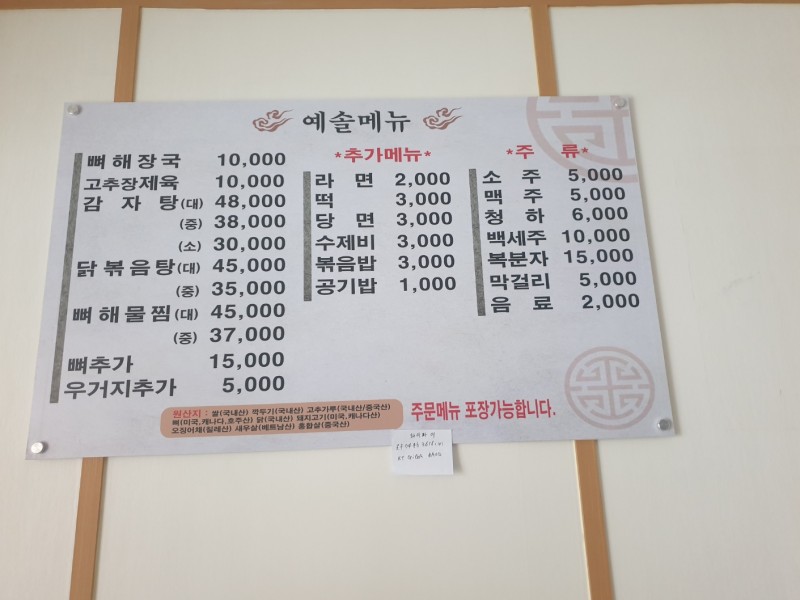 예솔메뉴
뼈해장국 10,000
고추장제육 10,000
감자탕(대) 48,000
(중) 38,000
(소) 30,000
닭볶음탕(대) 45,000
(중) 35,000
뼈해물찜(대) 45,000
(중) 37,000
뼈추가 15,000
우거지추가 5,000
*추가메뉴*
라면 2,000
떡 3,000
당면 3,000
수제비 3,000
볶음밥 3,000
공기밥 1,000
*주류*
소주 5,000
맥주 5,000
청하 6,000
백세주 10,000
복분자 15,000
막걸리 5,000
음료 2,000
원산지 : 쌀(국내산) 깍두기(국내산) 고추가루(국내산/중국산)
뼈(미국,캐나다,호주산) 닭(국내산) 돼지고기(미국,캐나다산)
오징어채(칠레산) 새우살(베트남산) 홍합살(중국산)
주문메뉴 포장가능합니다.